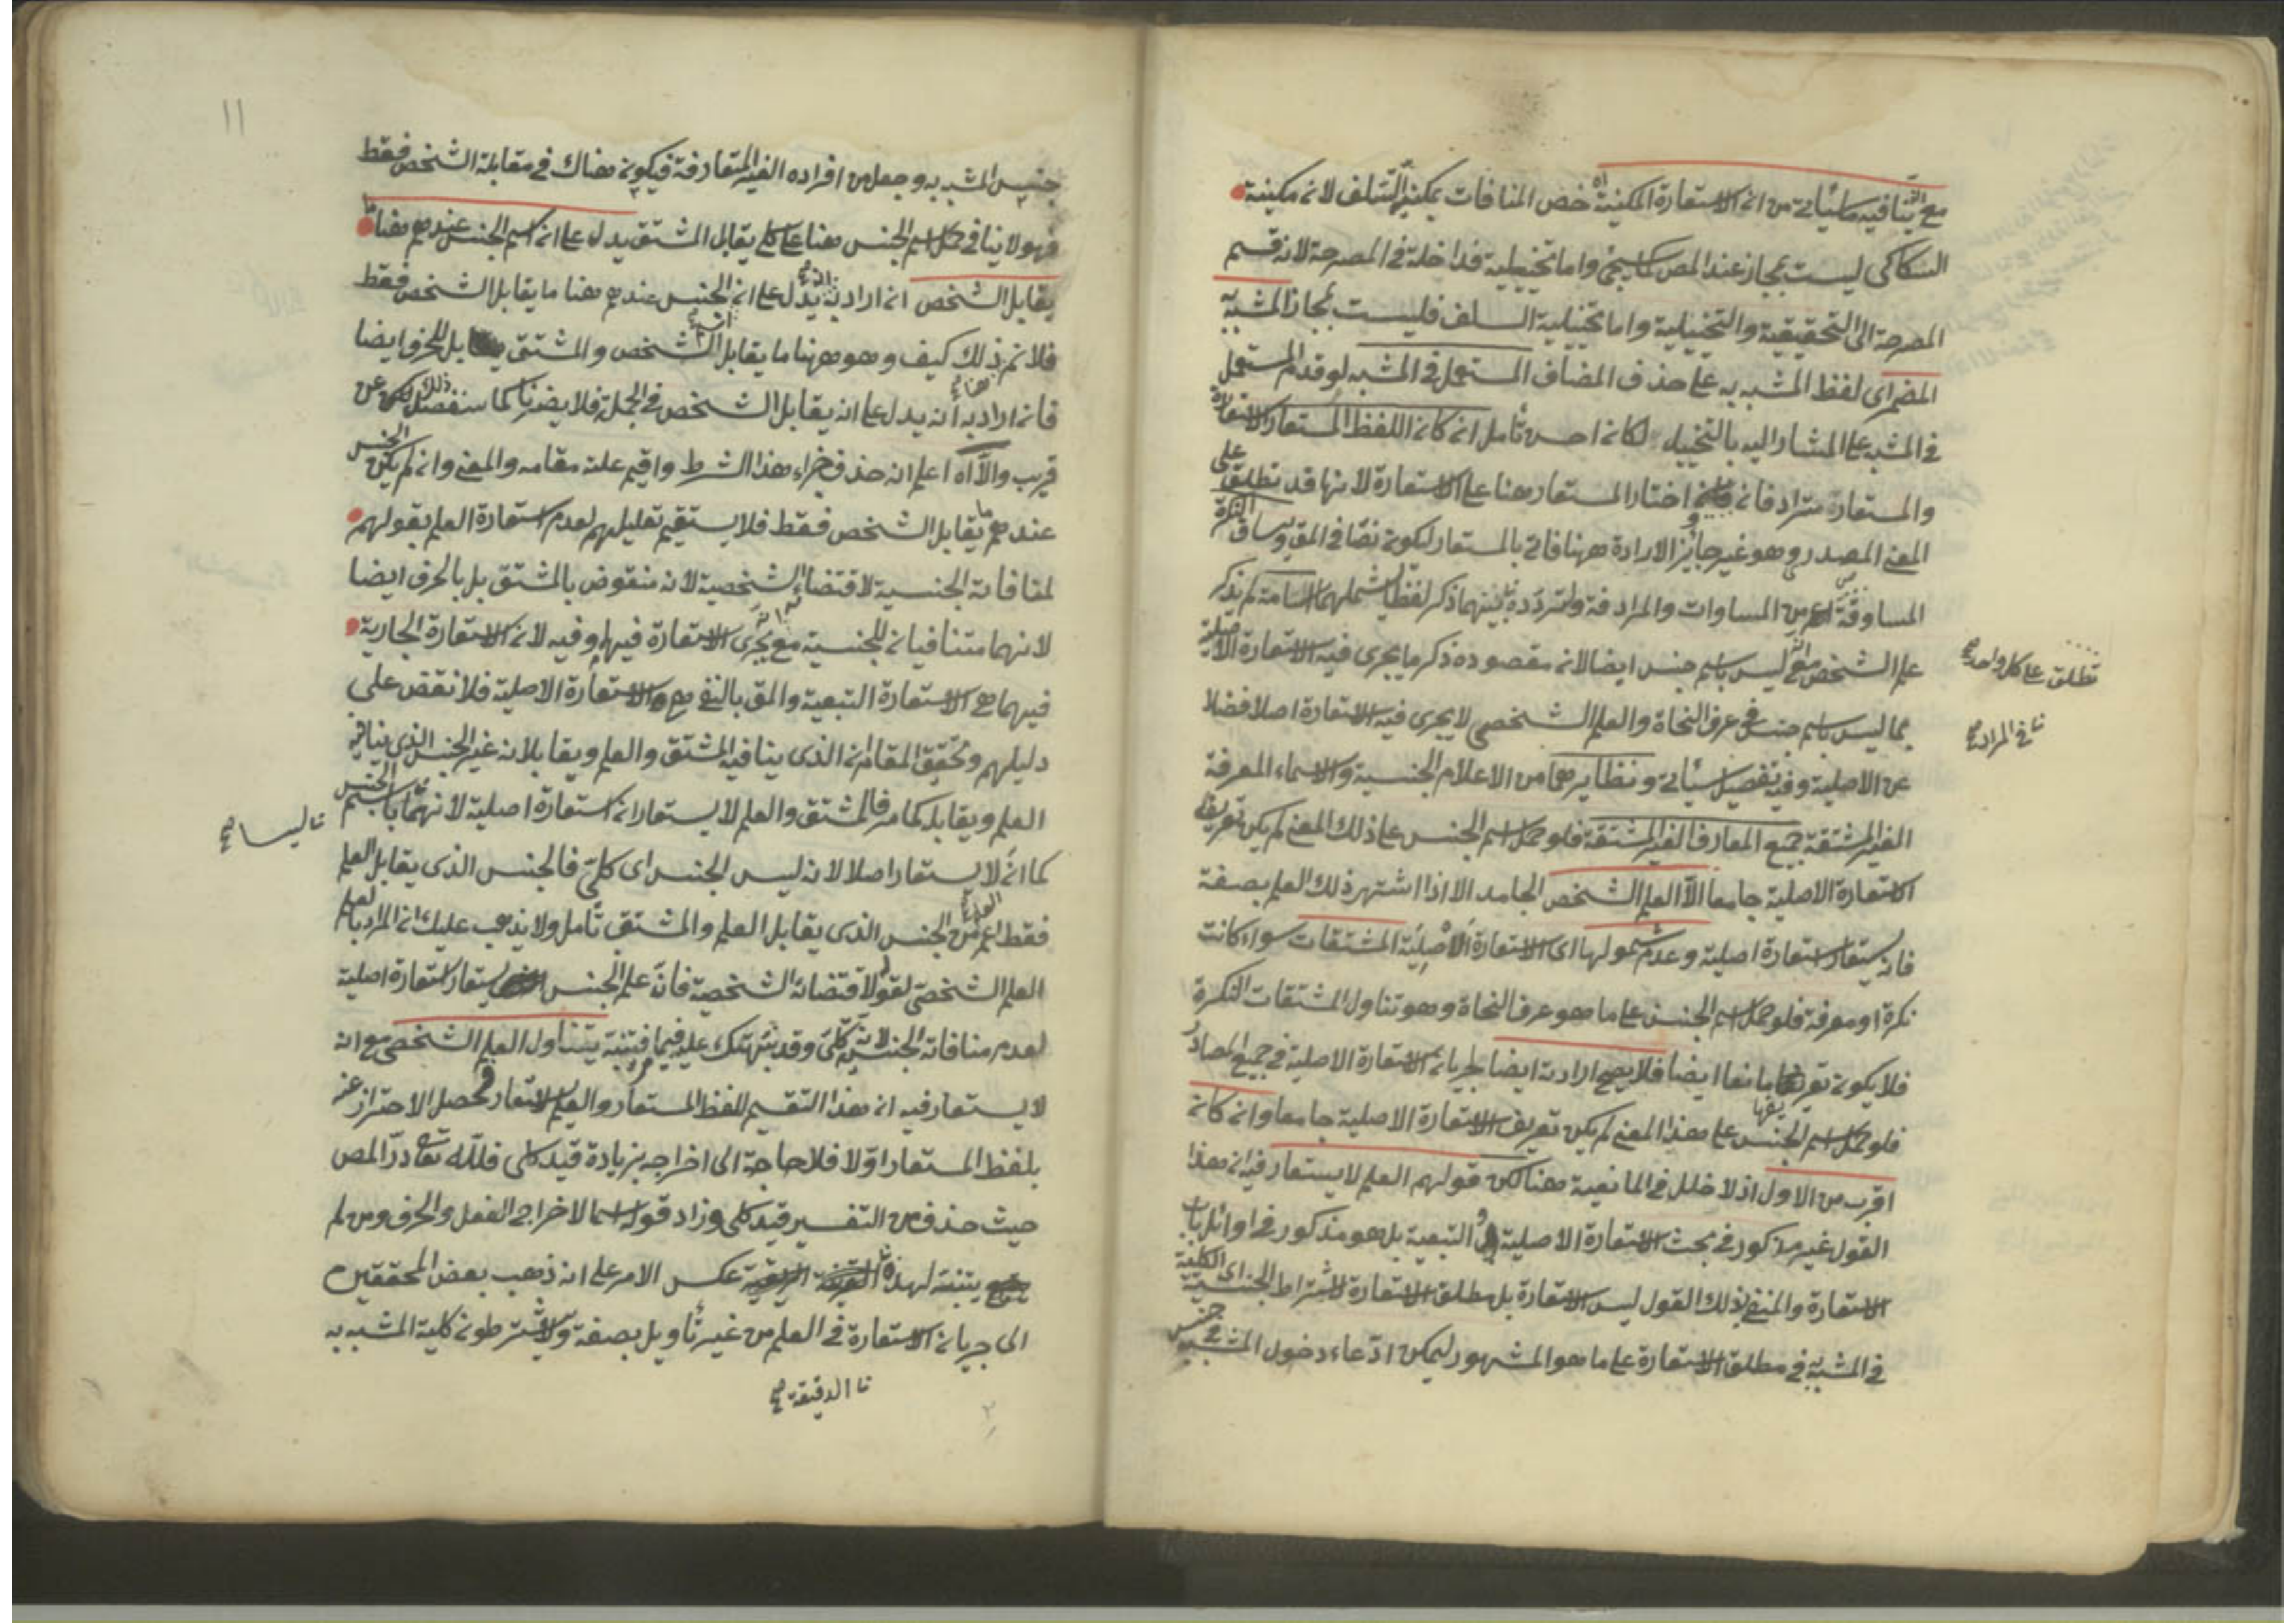 مع انه ينافيه ما سيأتى من ان الاستعارة المكنية اه خص المنافات بمكنية السلف لان مكينية
السكاكى ليست بمجاز عند المص كما سيجئ واما تخييلية فداخلة فى المصرحة لانه قسم
المصرحة الى التحقيقية والتخييلية واما تخييلية السلف فليست بمجاز المشبه به
المضمر اى لفظ المشبه به على حذف المضاف المستعمل فى المشبه لو قدم المستعمل
فى المشبه على المشار اليه بالتخييل لكان احسن تأمل ان كان اللفظ المستعار الاستعارة
والمستعارة مترادفان اختار المستعار هنا على الاستعارة لانها قد تطلق على
المعنى المصدرى وهو غير جائز الارادة ههنا فاتى بالمستعار ليكون نصا فى المق وساق النكرة
المساوقة اعم من المساوات والمرادفة ولتردده بينهما ذكر لفظا يشملهما السامة لم يذكر
علم الشخص مع انه ليس باسم جنس ايضا لان مقصوده ذكر ما يجرى فيه الاستعارة الاصلية
مما ليس باسم جنس فى عرف النحاة والعلم الشخصى لا يجرى فيه الاستعارة اصلا فضلا
عن الاصلية وفيه تفصيل سيأتى ونظايرهما من الاعلام الجنسية والاسماء المعرفة
الغير المشتقة جميع المعارف الغير المشتقة فلو حمل اسم الجنس على ذلك المعنى لم يكن تعريف
الاستعارة الاصلية جامعا الا العلم الشخص الجامد الا اذا اشتهر ذلك العلم بصفة
فانه يستعار استعارة اصلية وعدم شمولها اى الاستعارة الاصلية المشتقات سواء كانت
نكرة او معرفة فلو حمل اسم الجنس على ما هو عرف النحاة وهو تناول المشتقات النكرة
فلا يكون تعريفها مانعا ايضا فلا يصح ارادته ايضا لجريان الاستعارة الاصلية فى جميع المصادر
فلو حمل اسم الجنس على هذا المعنى لم يكن تعريف الاستعارة الاصلية جامعا وان كان
اقرب من الاول اذ لا خلل فى المانعية هنا لكن قولهم العلم لا يستعار فيه ان هذا
القول غير مذكور فى بحث الاستعارة الاصلية التبعية بل هو مذكور فى اوائل باب
الاستعارة والمنفى بذلك القول ليس الاستعارة بل مطلق الاستعارة لاشتراط الجنسية اى الكلية
فى المشبه به فى مطلق الاستعارة على ما هو المشهور ليمكن ادعاء دخول المشبه فى جنس
تطلق على كل واحد صح
نا فى المراد صح
١١
جنس المشبه به وجعل من افراده الغير المتعارفة فيكون هناك فى مقابلة الشخص فقط
فهو لا ينافى حمل اسم الجنس هنا على كلى يقابل المشتق يدل على ان اسم الجنس عندهم هنا ما
يقابل الشخص ان اراد به انه يدل على ان الجنس عندهم هنا ما يقابل الشخص فقط
فلا نم ذلك كيف وهو ههنا ما يقابل الشخص والمشتق بل الحرف ايضا
فان اراد به انه يدل على انه يقابل الشخص فى الجملة فلا يضرنا كما سنفصل ذلك لك عن
قريب والا اه اعلم انه حذف جزاء هذا الشرط واقيم علته مقامه والمعنى وان لم يكن الجنس
عندهم ما يقابل الشخص فقط فلا يستقيم تعليلهم لعدم استعارة العلم بقولهم
لمنافاته الجنسية لاقتضاء الشخصية لانه منقوض بالمشتق بل بالحرف ايضا
لانهما متنافيان للجنسية مع انه يجرى الاستعارة فيهما وفيه لان الاستعارة الجارية
فيهما هى الاستعارة التبعية والمق بالنفى هو الاستعارة الاصلية فلا نقض على
دليلهم وتحقيق المقام ان الذى ينافيه المشتق والعلم ويقابلانه غير الجنس الذى ينافيه
العلم ويقابله كما مر فالمشتق والعلم لا يستعاران استعارة اصلية لانهما باسم الجنس
كما انه لا يستعار اصلا لانه ليس الجنس اى كلى فالجنس الذى يقابل العلم
فقط اعم من الجنس الذى يقابل العلم والمشتق تأمل ولا يذهب عليك ان المراد بالعلم
العلم الشخصى لقوله لاقتضائه الشخصية فان علم الجنس يستعار استعارة اصلية
لعدم منافاته الجنسية لانه كلى وقد نبهتك عليه فيما فتنبه يتناول العلم الشخصى مع انه
لا يستعار فيه ان هذا التقسيم للفظ المستعار والعلم لا يستعار فحصل الاحتراز عنه
بلفظ المستعار اولا فلا حاجة الى اخراجه بزيادة قيد كلى فلله تعا در المص
حيث حذف من التفسير قيد كلى وزاد قوله اسما لاخراج الفعل والحرف ومن لم
يتنبه لهذه عكس الامر على انه ذهب بعض المحققين
الى جريان الاستعارة فى العلم من غير تأويل بصفة ولا يشترطون كلية المشبه به
نا ليسا صح
نا الدقيقة صح